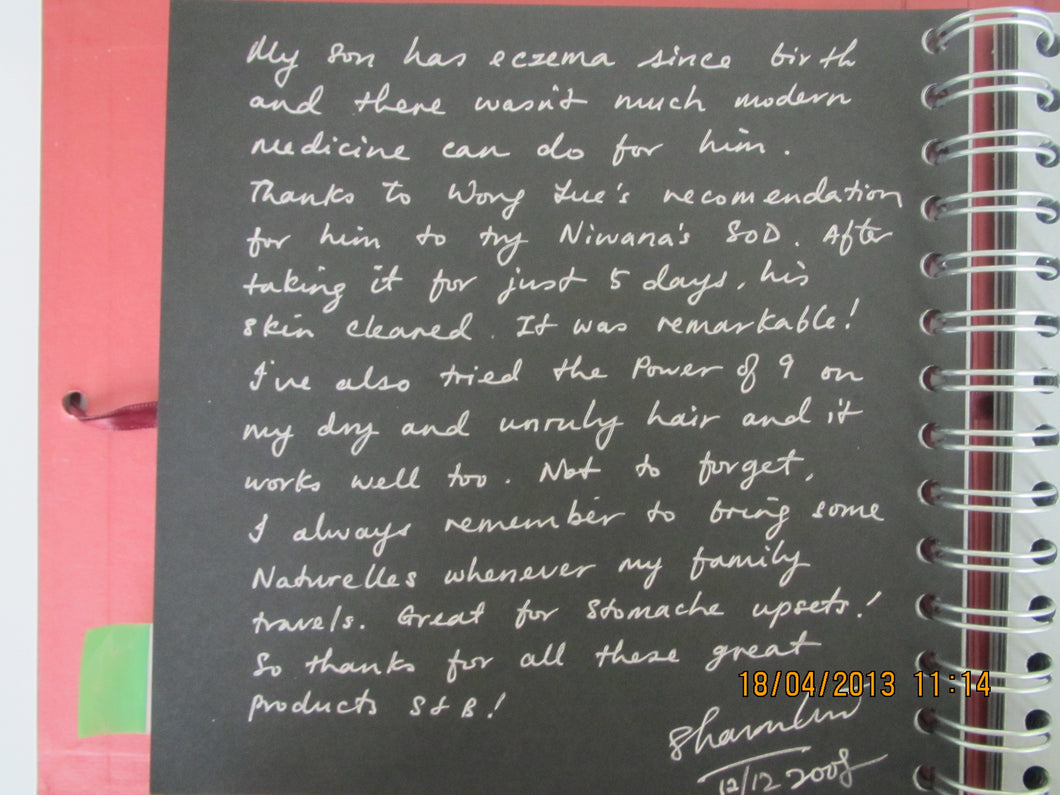 My son has eczema since birth
and there wasn't much modern
medicine can do for him.
Thanks to Wong Lue's recomendation
for him to try Niwana's SOD. After
taking it for just 5 days, his
skin cleared. It was remarkable!
I've also tried the Power of 9 on
my dry and unruly hair and it
works well too. Not to forget,
I always remember to bring some
Naturelles whenever my family
travels. Great for stomache upsets!
So thanks for all these great
products S & B!
18/04/2013 11:14
12/12 2008